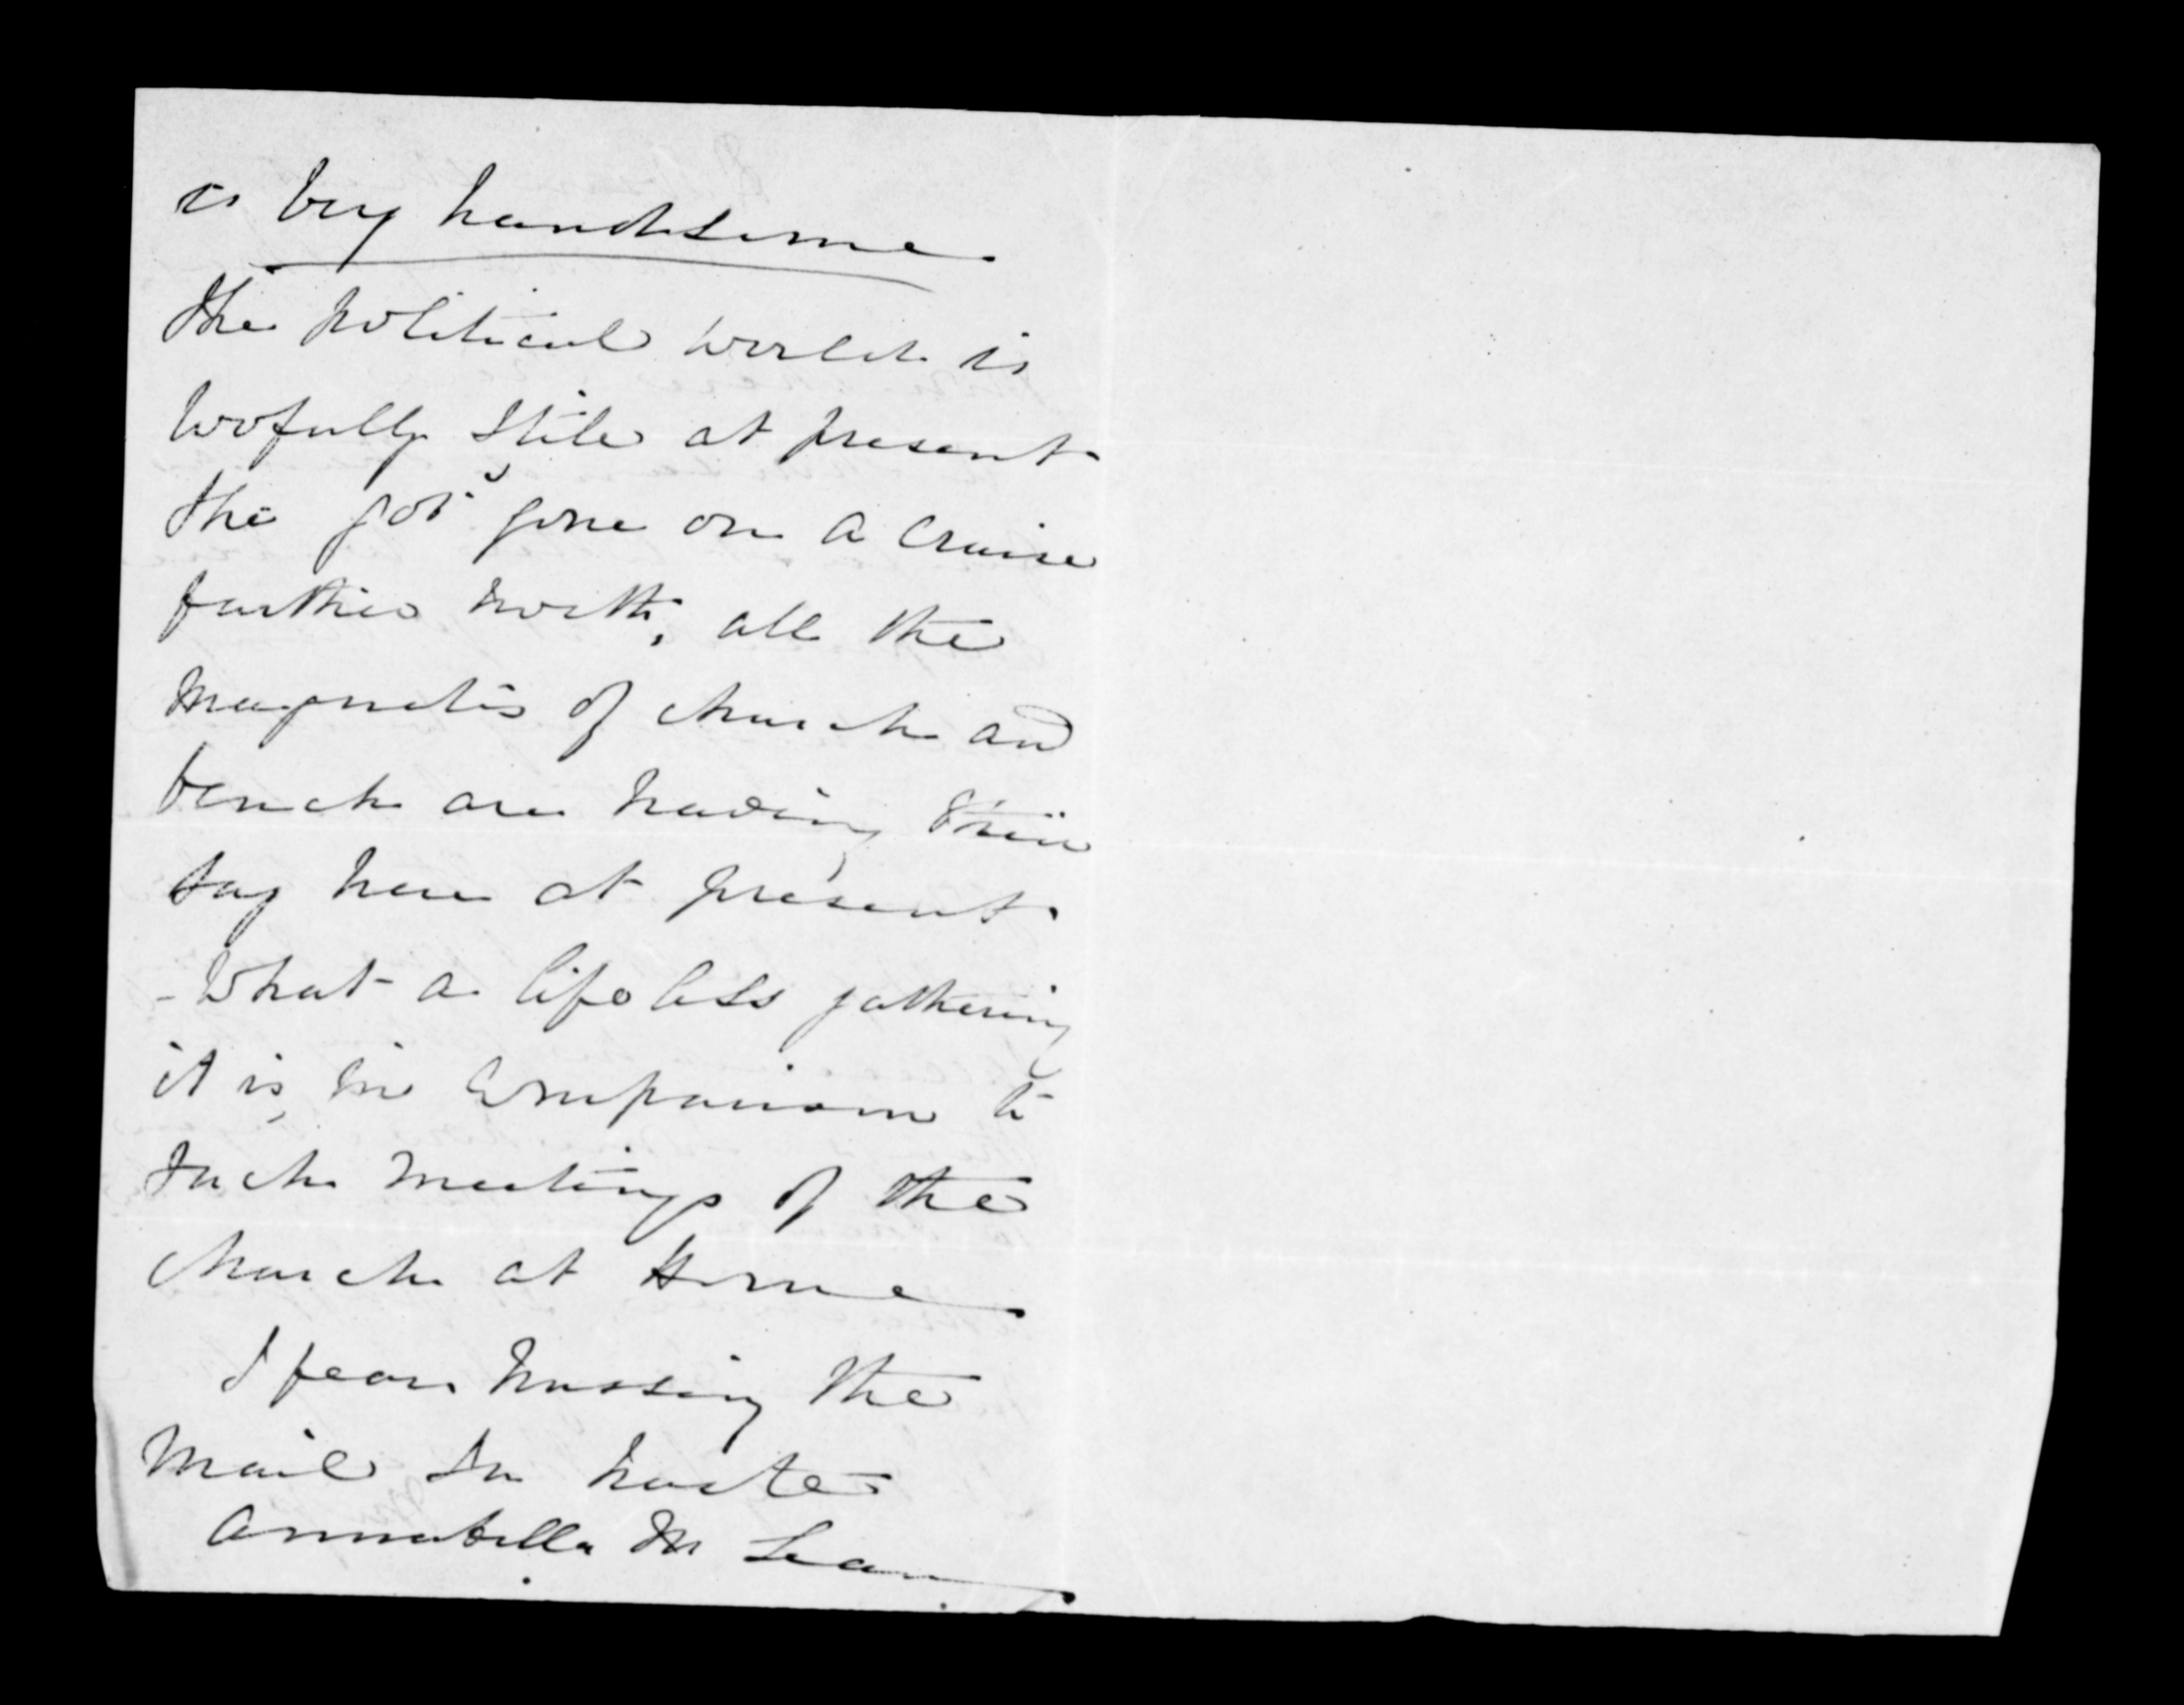 is very handsome.
The political world is
wofully still at present
the Govr gone on a cruise
further north, all the
magnates of church and
bench are having their
say here at present.
- What a lifeless gathering
it is, in comparison to
such meetings of the
church at Home.
I fear missing the
mail In haste
Annabella McLean